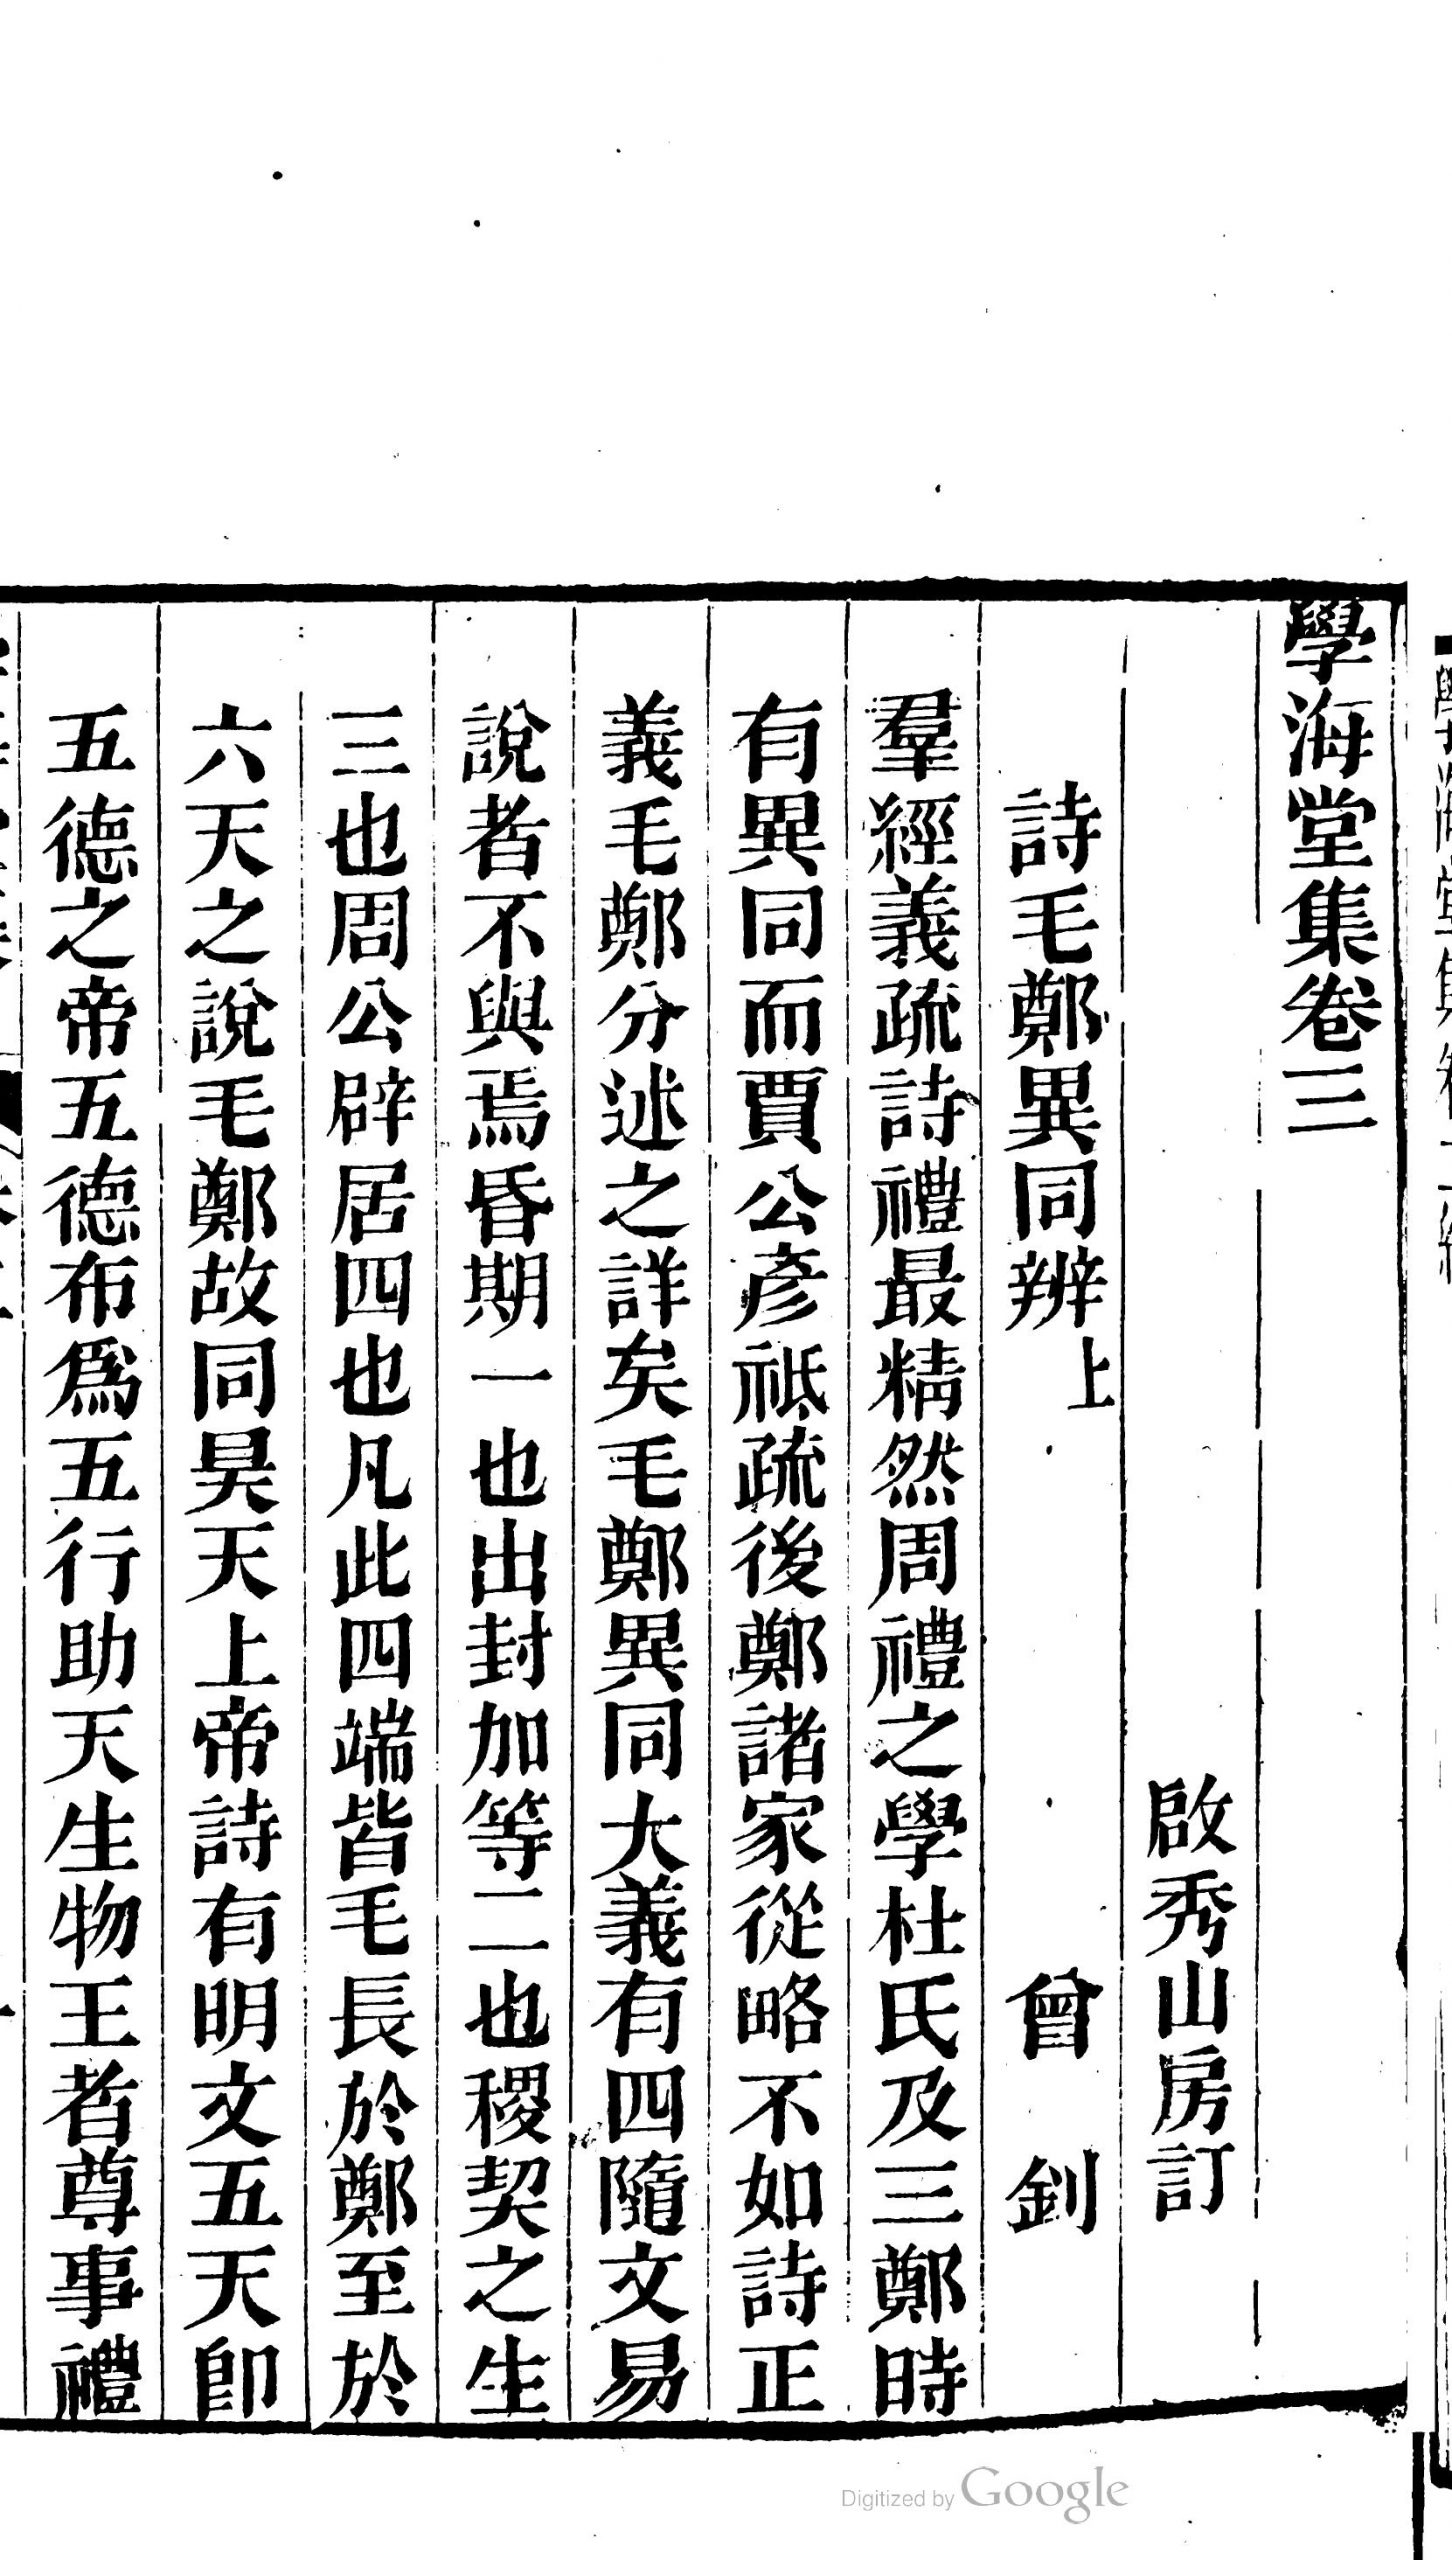 學海堂集卷三
啟秀山房訂
詩毛鄭異同辨上 曾釗
羣經義疏詩禮最精然周禮之學杜氏及三鄭時
有異同而賈公彥祗疏後鄭諸家從略不如詩正
義毛鄭分述之詳矣毛鄭異同大義有四隨文易
說者不與焉昏期一也出封加等二也稷契之生
三也周公辟居四也凡此四端皆毛長於鄭至於
六天之說毛鄭故同昊天上帝詩有明文五天卽
五德之帝五德布爲五行助天生物王者尊事禮
Digitized by Google